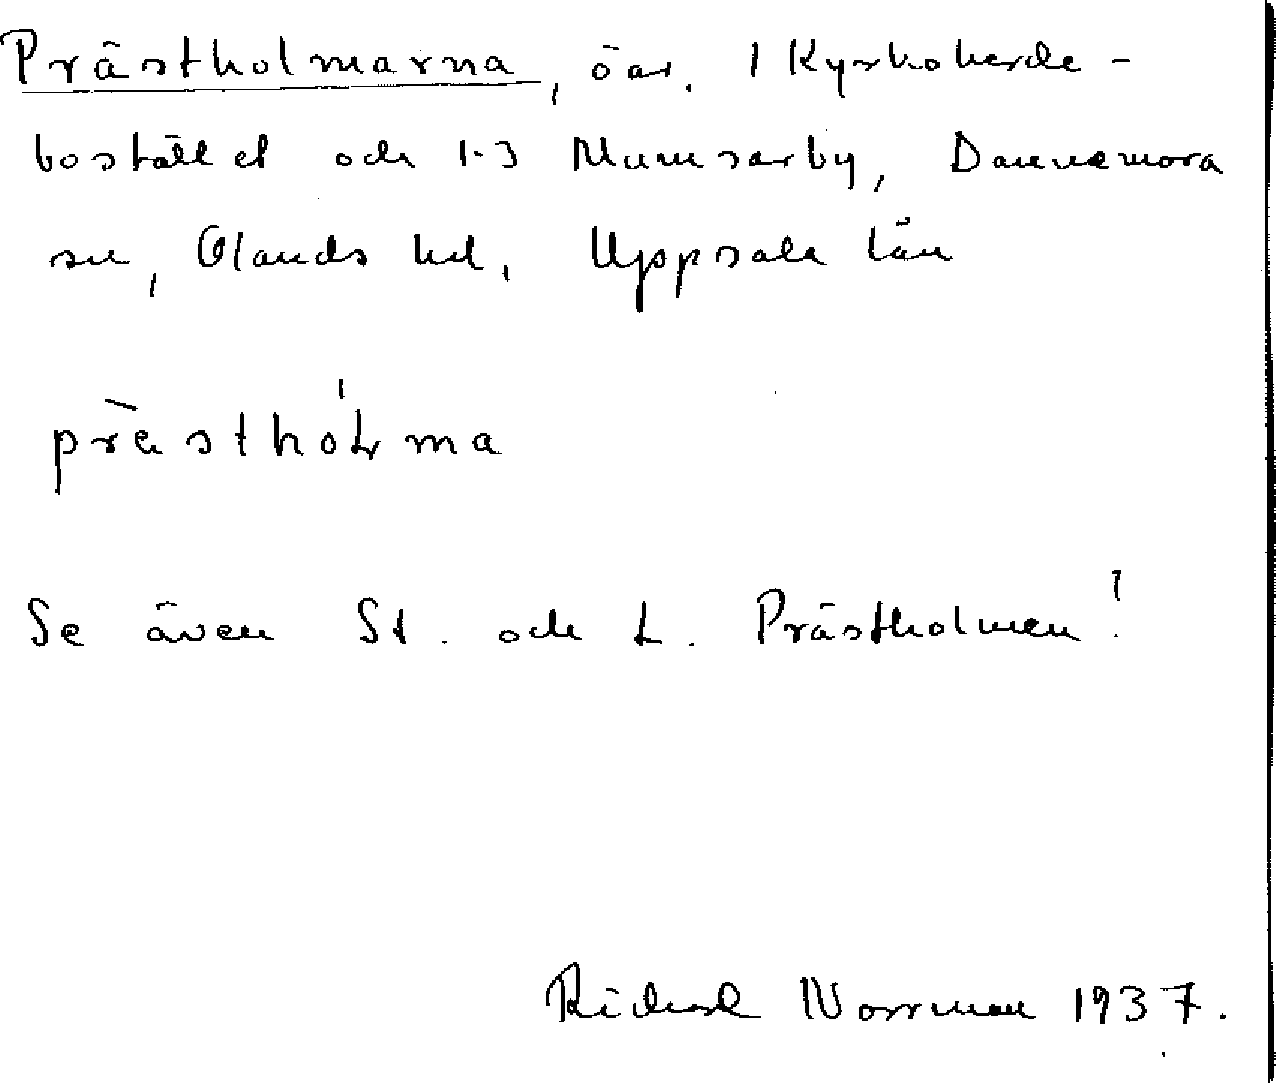 Prästholmarna, öar. 1 Kyrkoherde-
bostället och 1-3 Mumsarby, Dannemora
sn, Olands hd, Uppsala län
prèsthóɫma
Se även St. och L. Prästholmen!
Richard Norrman 1937.